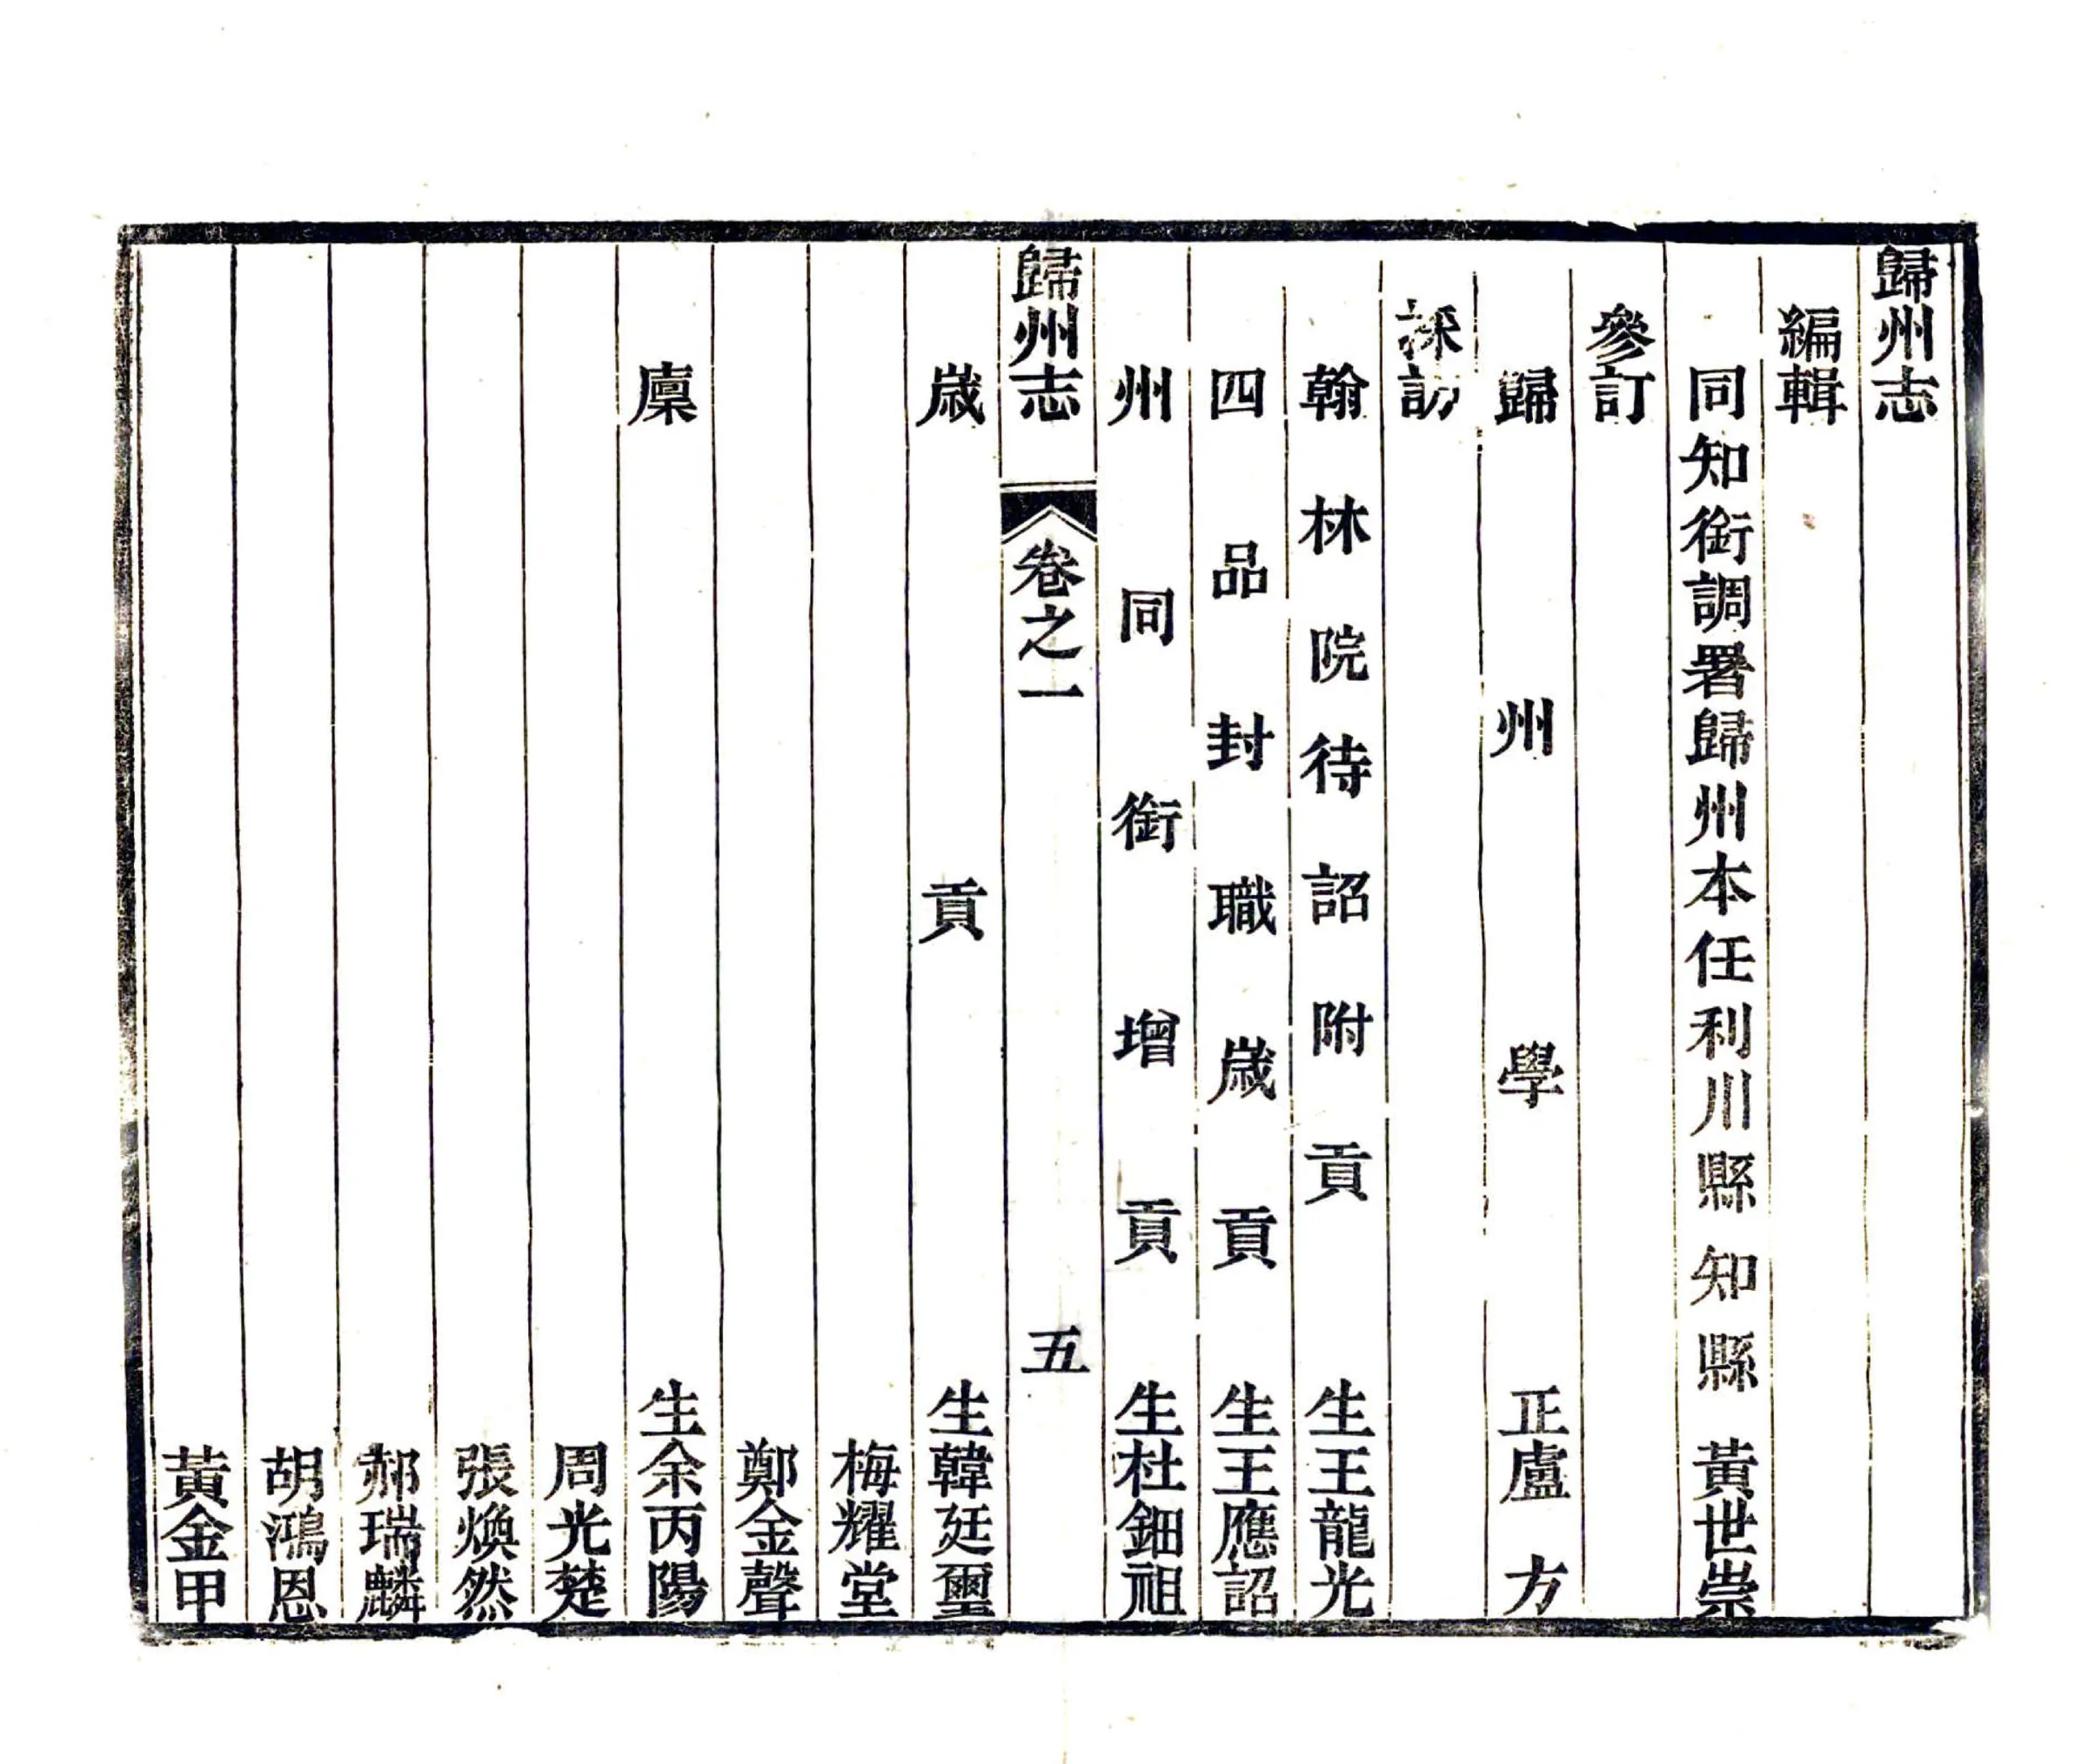 歸州志
編輯
同知銜調署歸州本任利川縣知縣黃世崇
參訂
歸州學正盧方
採訪
翰林院待詔附貢生王龍光
四品封職歲貢生王應詔
州同銜增貢生杜鈿祖
歸州志 卷之一 五
歲貢生韓廷璽
梅耀堂
鄭金聲
廩生余丙陽
周光楚
張煥然
郝瑞麟
胡鴻恩
黃金甲